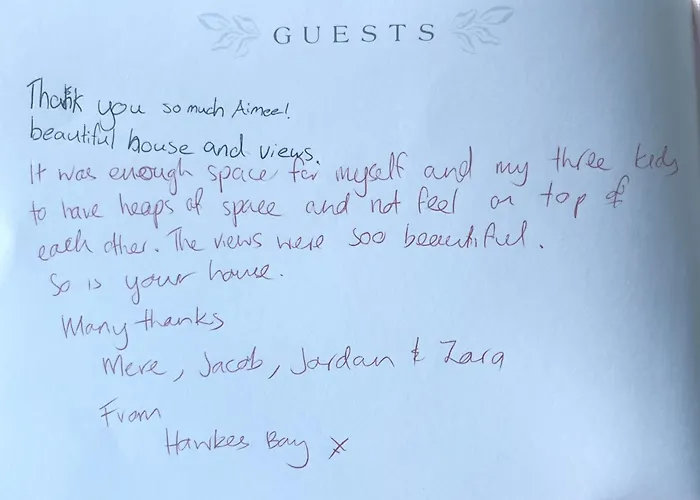 GUESTS
Thank you so much Aimee!
beautiful house and views.
It was enough space for myself and my three kids
to have heaps of space and not feel on top of
each other. The views were soo beautiful.
So is your house.
Many thanks
Mere, Jacob, Jordan & Zara
From
Hawkes Bay x